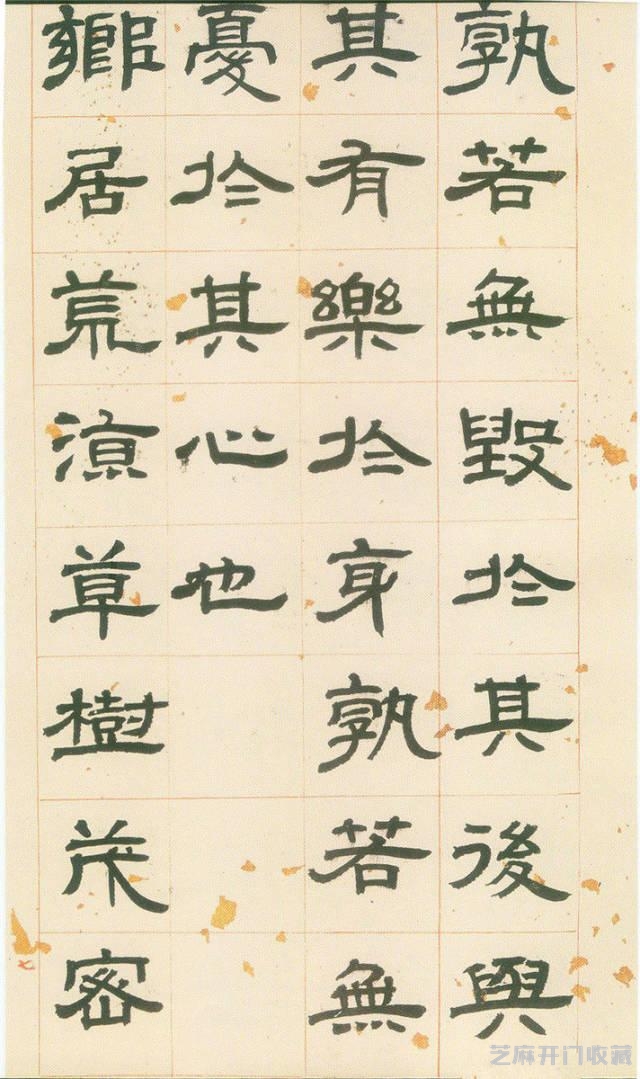 孰若無毀於其後與
其有樂於身孰若無
憂於其心也
鄉居荒涼草樹茂密
芝麻开门收藏